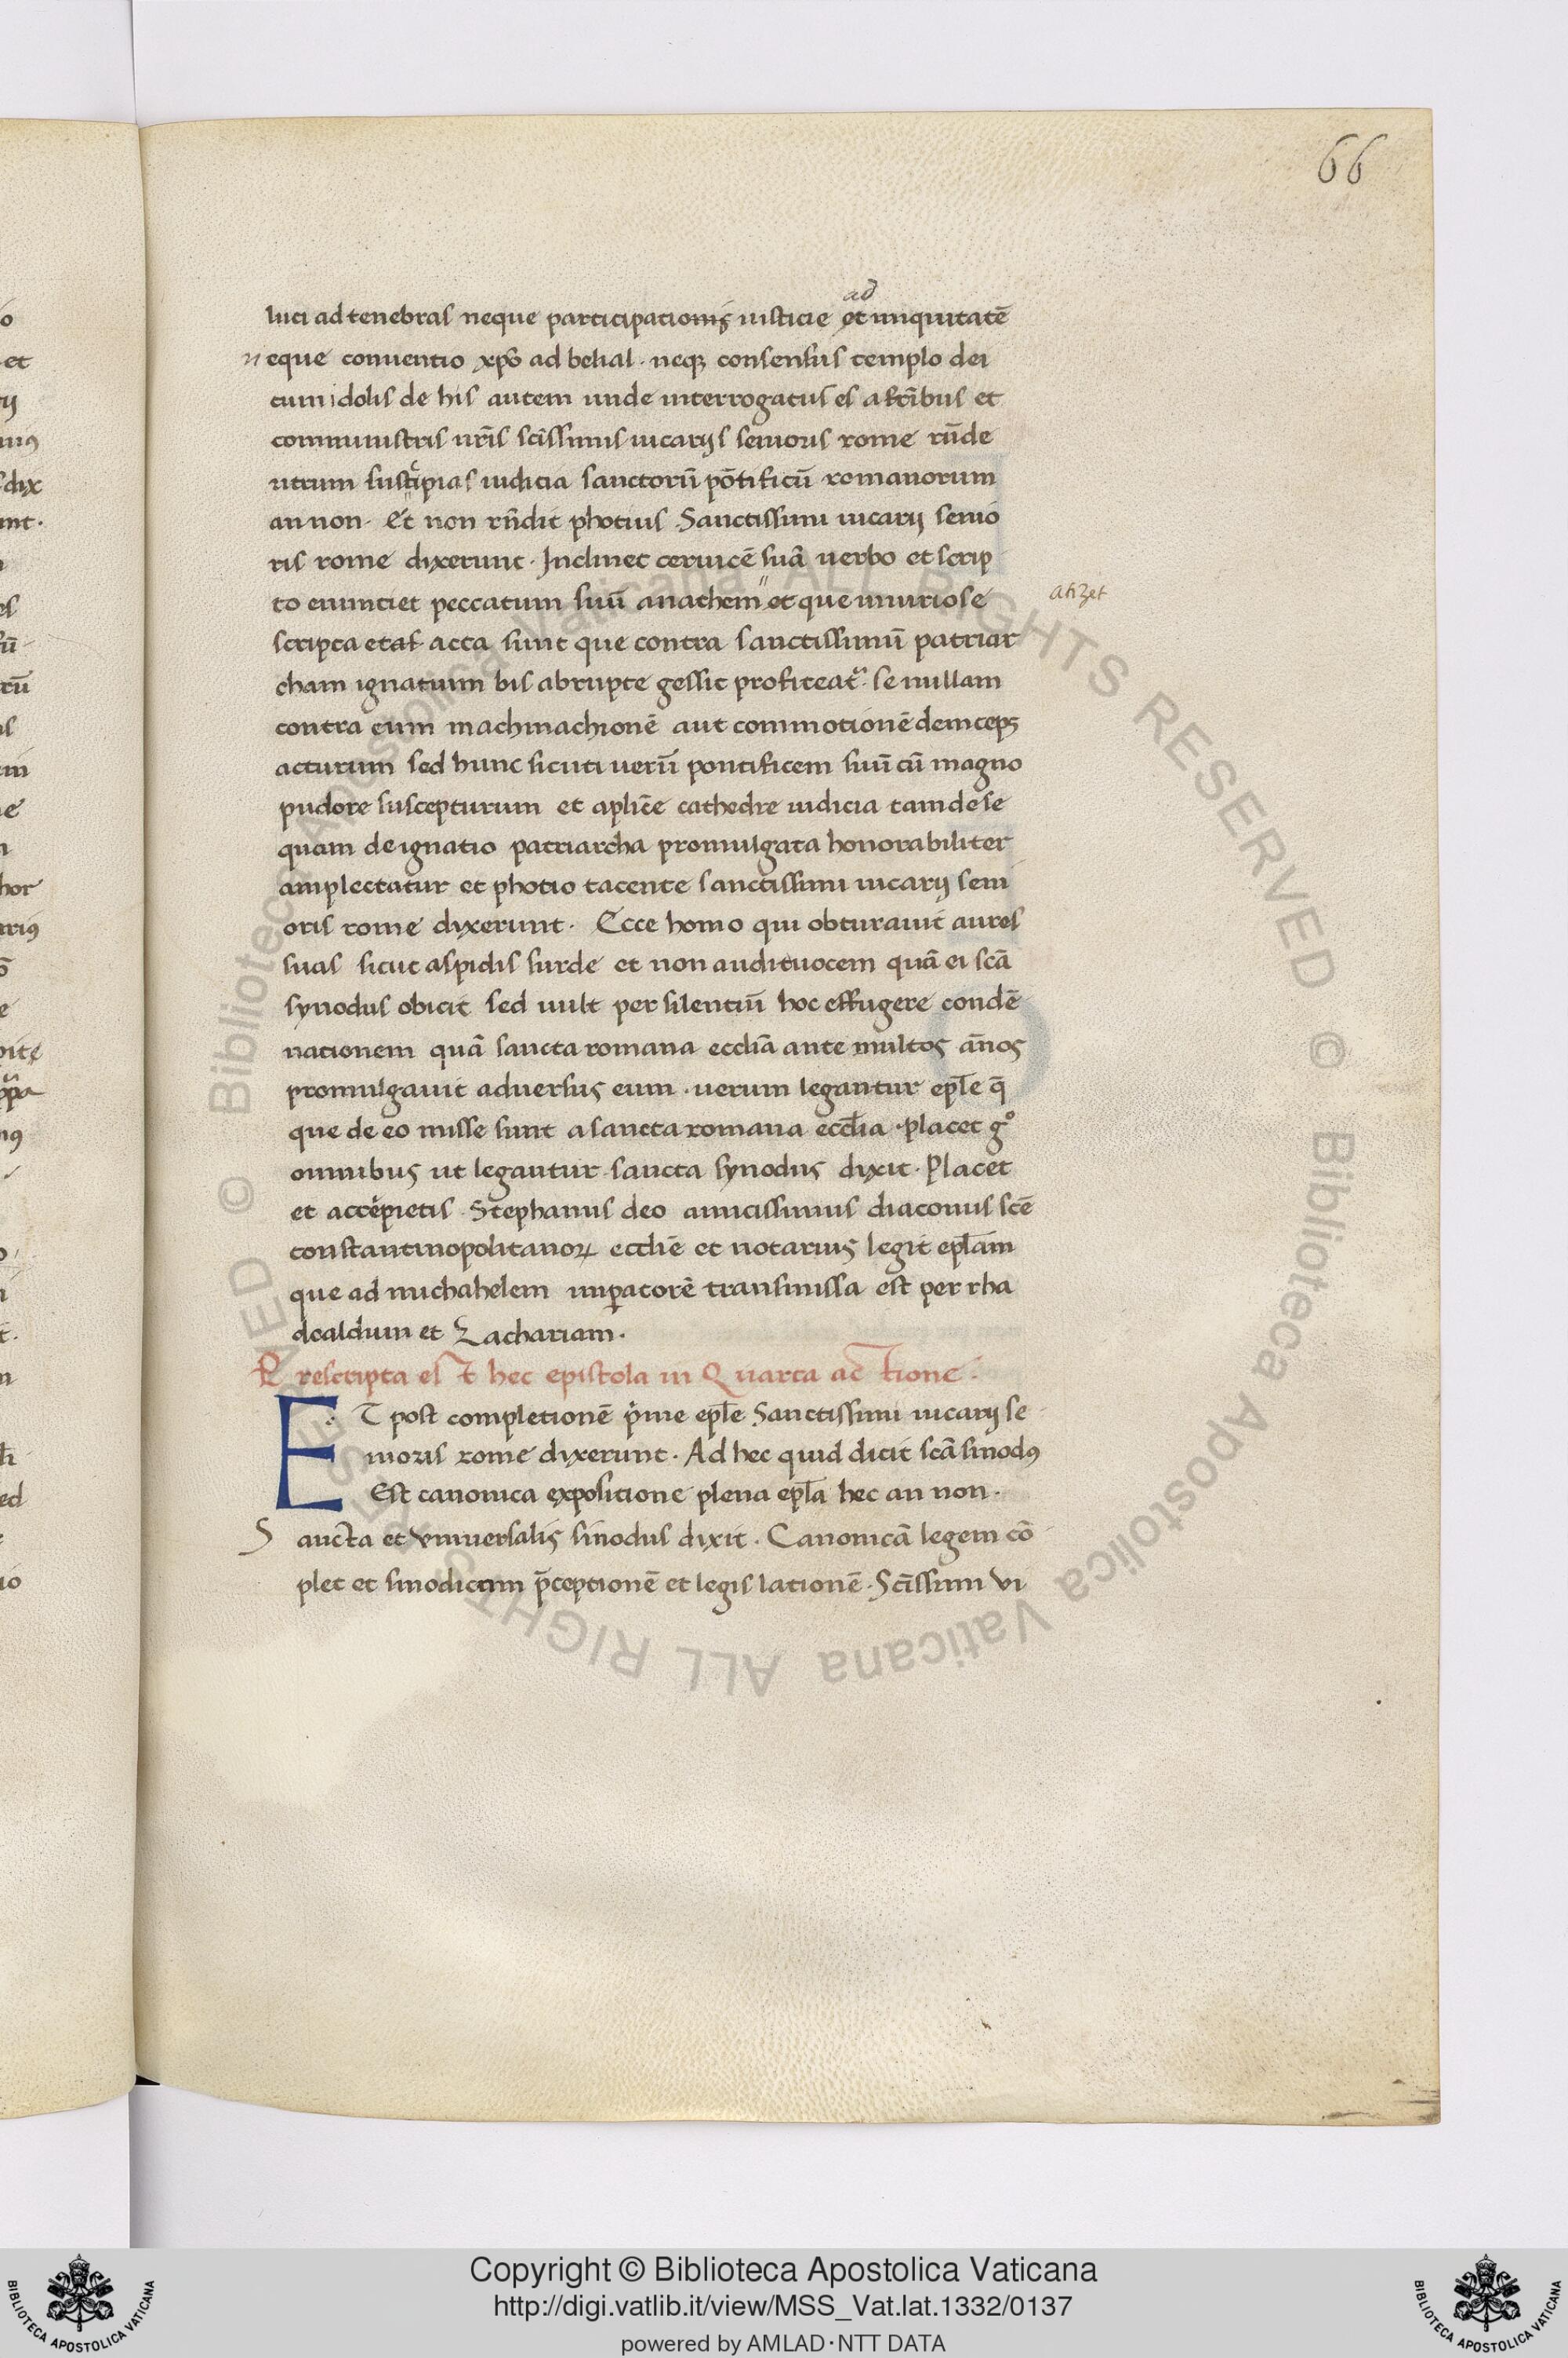 66
ad
luci ad tenebras neque participationis iusticie et iniquitatē
neque conuentio xp̄o ad belial · neqȝ consensus templo dei
cum idolis de his autem unde interrogatus es a frībus et
comministris nr̄is scīssimis uicarijs senioris rome rn̄de
utrum suscipias iudicia sanctorū pōtificū romanorum
an non · Et non rn̄dit photius · Sanctissimi uicarij senio
ris rome dixerunt · Inclinet ceruicē suā uerbo et scrip
to enunciet peccatum suū anathem" et que iniuriose
atizet
scripta et acta sunt que contra sanctissimū patriar
cham ignatium bis abrupte gessit profiteat᷑ · se nullam
contra eum machinachionē aut commotionē deincepȝ
acturum sed hunc sicuti uerū pontificem suū cū magno
pudore suscepturum et aplic̄e cathedre iudicia tam de se
quam de ignatio patriarcha promulgata honorabiliter
amplectatur et photio tacente sanctissimi uicarij seni
oris rome dixerunt · Ecce homo qui obturauit aures
suas sicut aspidis surde et non audit uocem quā ei scā
synodus obicit sed uult per silentiū hoc effugere condē
nationem quā sancta romana ecclīa ante multos ān̄os
promulgauit aduersus eum · uerum legantur epl̄e q̄
que de eo misse sunt a sancta romana eccl̄ia · placet gͦ
omnibus ut legantur sancta synodus dixit · Placet
et accepietis · Stephanus deo amicissimus diaconus scē
constantinopolitanoꝝ eccliē et notarius legit epl̄am
que ad michahelem imꝑatorē transmissa est per rha
dealdum et Zachariam ·
Prescripta est hec epistola in Quarta actione ·
ET post completionē p̄me epl̄e Sanctissimi uicarij se
nioris rome dixerunt · Ad hec quid dicit scā sinodꝯ
Est canonica expositione plena epl̄a hec an non ·
Sancta et vniuersalis sinodus dixit · Canonicā legem cō
plet et sinodicam p̄ceptionē et legis lationē · Scīssimi vi
Copyright © Biblioteca Apostolica Vaticana
http://digi.vatlib.it/view/MSS_Vat.lat.1332/0137
powered by AMLAD·NTT DATA